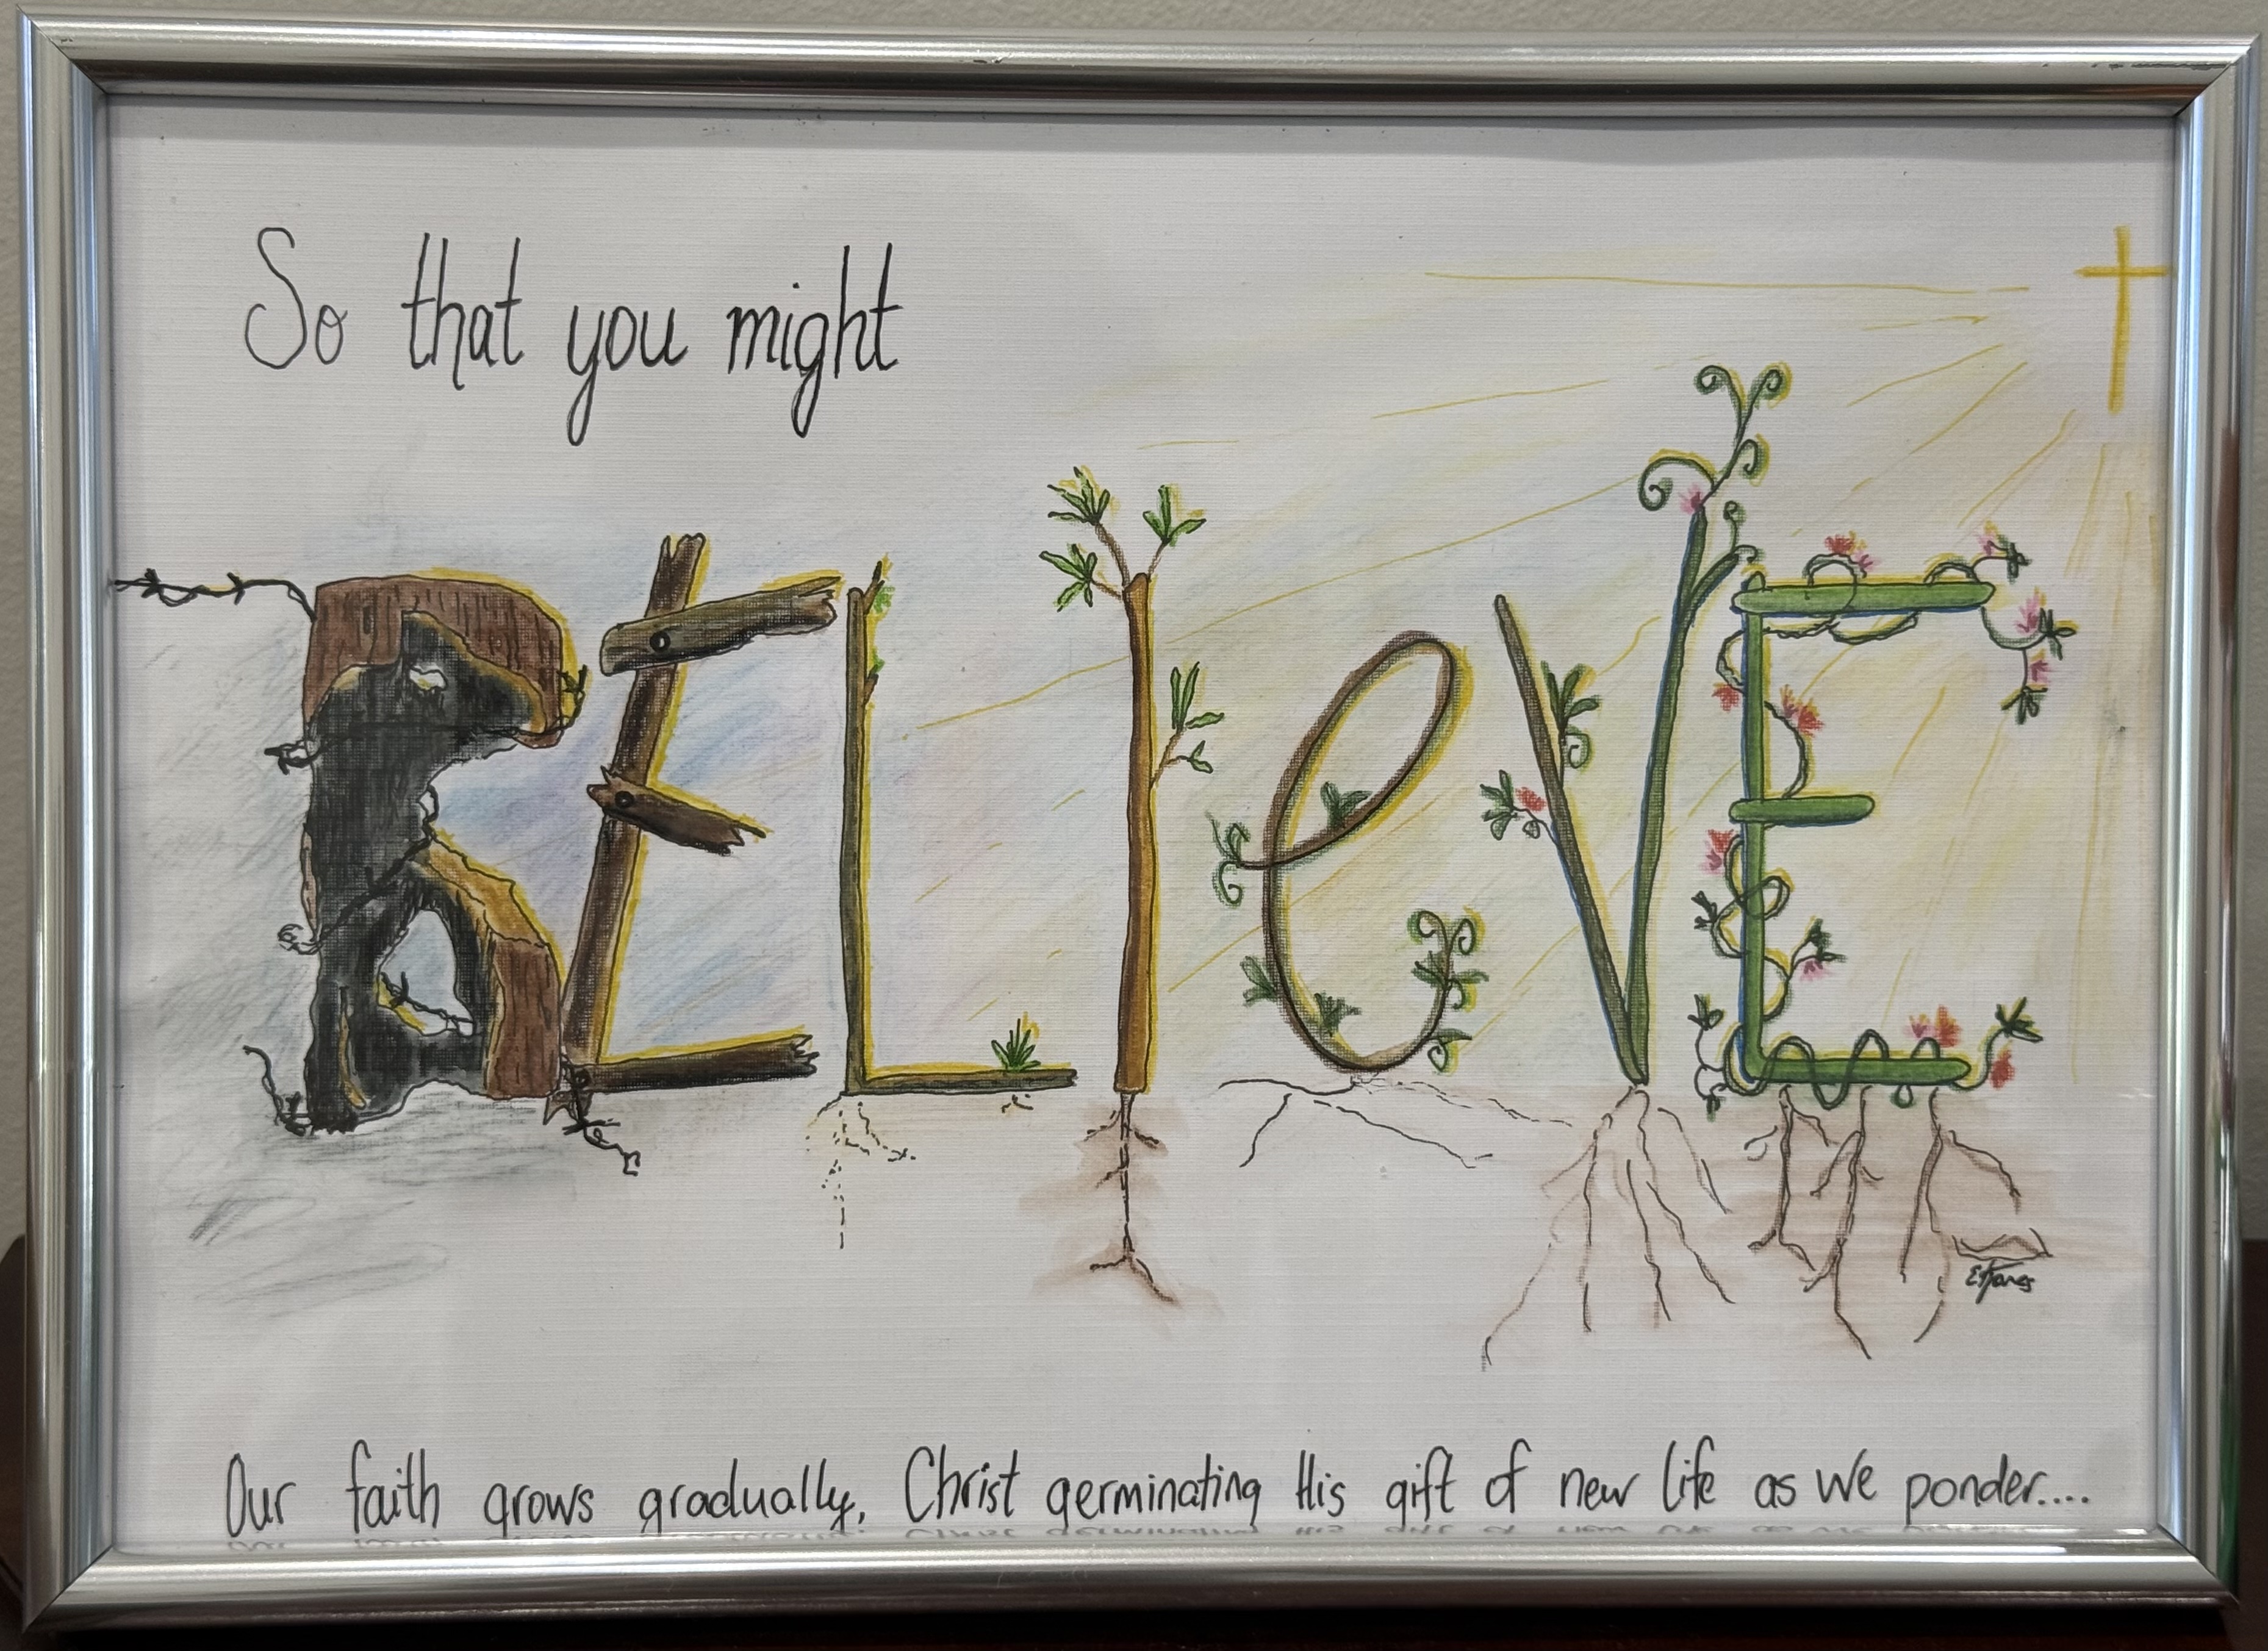 So that you might
BELIeVE
Our faith grows gradually, Christ germinating His gift of new life as we ponder....